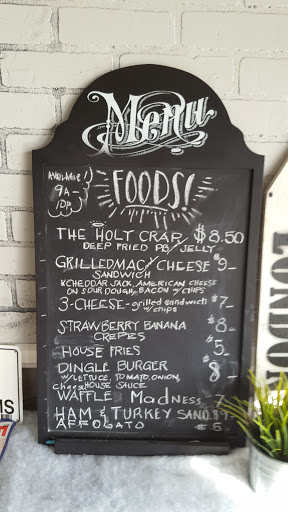 Menu
AVAILABLE
9A-
10P
FOODS!
THE HOLY CRAP $8.50
DEEP FRIED PB/JELLY
GRILLED MAC Y CHEESE $9-
SANDWICH
*CHEDDAR JACK, AMERICAN CHEESE
ON SOUR DOUGH, BACON w/CHIPS
3-CHEESE-grilled sandwich $7-
w/chips
STRAWBERRY BANANA $8-
CREPES
HOUSE FRIES $5-
DINGLE BURGER $8-
W/LETTUCE, TOMATO, ONION,
cheese HOUSE SAUCE
WAFFLE Madness 7
HAM & TURKEY SAND. $9
AFFOGATO $5
LONDON
MS